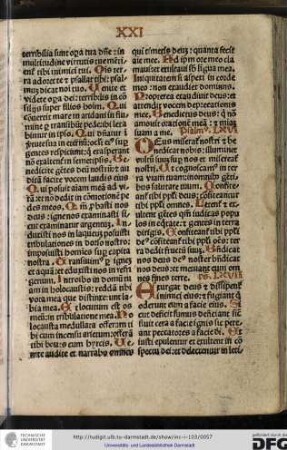 XXI
terribilia sunt opa tua dñe: in
multitudine virtutis tue mētiēt̄
tibi inimici tui. Ois ter
ra adoret te et psallat tibi: psal
mū dicat noi tuo. Uenite et
videte opa dei: terribilis in cō
silijs super filios hoim. Qui
cōvertit mare in aridam in flumi
ne ptrāsibūt pede: ibi leta
bimur in ipso. Qui dñatur in
virtute
non exaltent in semetipsis. Be
nedicite gētes deū nostrū: et au
ditā facite vocem laudis eius
Qui posuit aiam meā ad vi
tā: et nō dedit in cōmotionē pe
des meos. Qm̄ pbasti nos
deus: igne nos examinasti si
cut examinatur argentū. In
duxisti nos in laqueū posuisti
tribulationes in dorso nostro:
imposuisti homines sup capita
nostra. Transiuim⁹ p ignē
et aquā: et eduxisti nos in refri
geriū. Introibo in domū tu
am in holocaustis: reddā tibi
vota mea que distinxerūt labia
mea. Et locutum est os
meū: in tribulatione mea. Ho
locausta medullata offeram ti
bi cum incensu arietum: offerā
tibi boues cum hyrcis. Ue
nite audite et narrabo omnes
qui timetis deuz: quanta fecit
aīe mee. Ad ipm ore meo cla
maui: et exaltaui sub ligua mea.
Iniquitatem si aspexi in corde
meo: non exaudiet dominus.
Propterea exaudiuit deus: et
attendit voci deprecationis
mee. Benedictus deus: q̄ nō
amouit orationē meā: et miaz
suam a me. Psalm⁹. LXVI
DEus misereat̄ nostri et be
nedicat nobis: illuminet
vultū suū sup nos et misereat̄
nostri. Ut cognoscam⁹ in ter
ra viam tuam: in omnibus gēti
bus salutare tuum. Confiteāt̄
tibi ppli deus: confiteant̄
tibi ppli omnes. Letent̄ et ex
ultent gētes: qm̄ iudicas popu
los in eqtate: et gentes in terra
dirigis. Cōfiteant̄ tibi ppli
de⁹ cōfiteant̄ tibi ppli oēs:
terra dedit fructū suū. Bn̄dicat
nos deus de⁹ noster bn̄dicat
nos deus: et metuant eum om
nes fines terre. Ps. LXVII
EXurgat deus et dissipent̄
inimici eius: et fugiant q
oderunt eum a facie eius. Si
cut deficit fumus deficiant: sic
fluit cera a facie ignis sic pe
reant peccatores a facie dei. Et
iusti epulentur et exultent in cō
spectu dei: et delectentur in leti
http://tudigit.ulb.tu-darmstadt.de/show/inc-i-103/0057
Universitäts- und Landesbibliothek Darmstadt
TECHNISCHE
UNIVERSITÄT
DARMSTADT
DFG